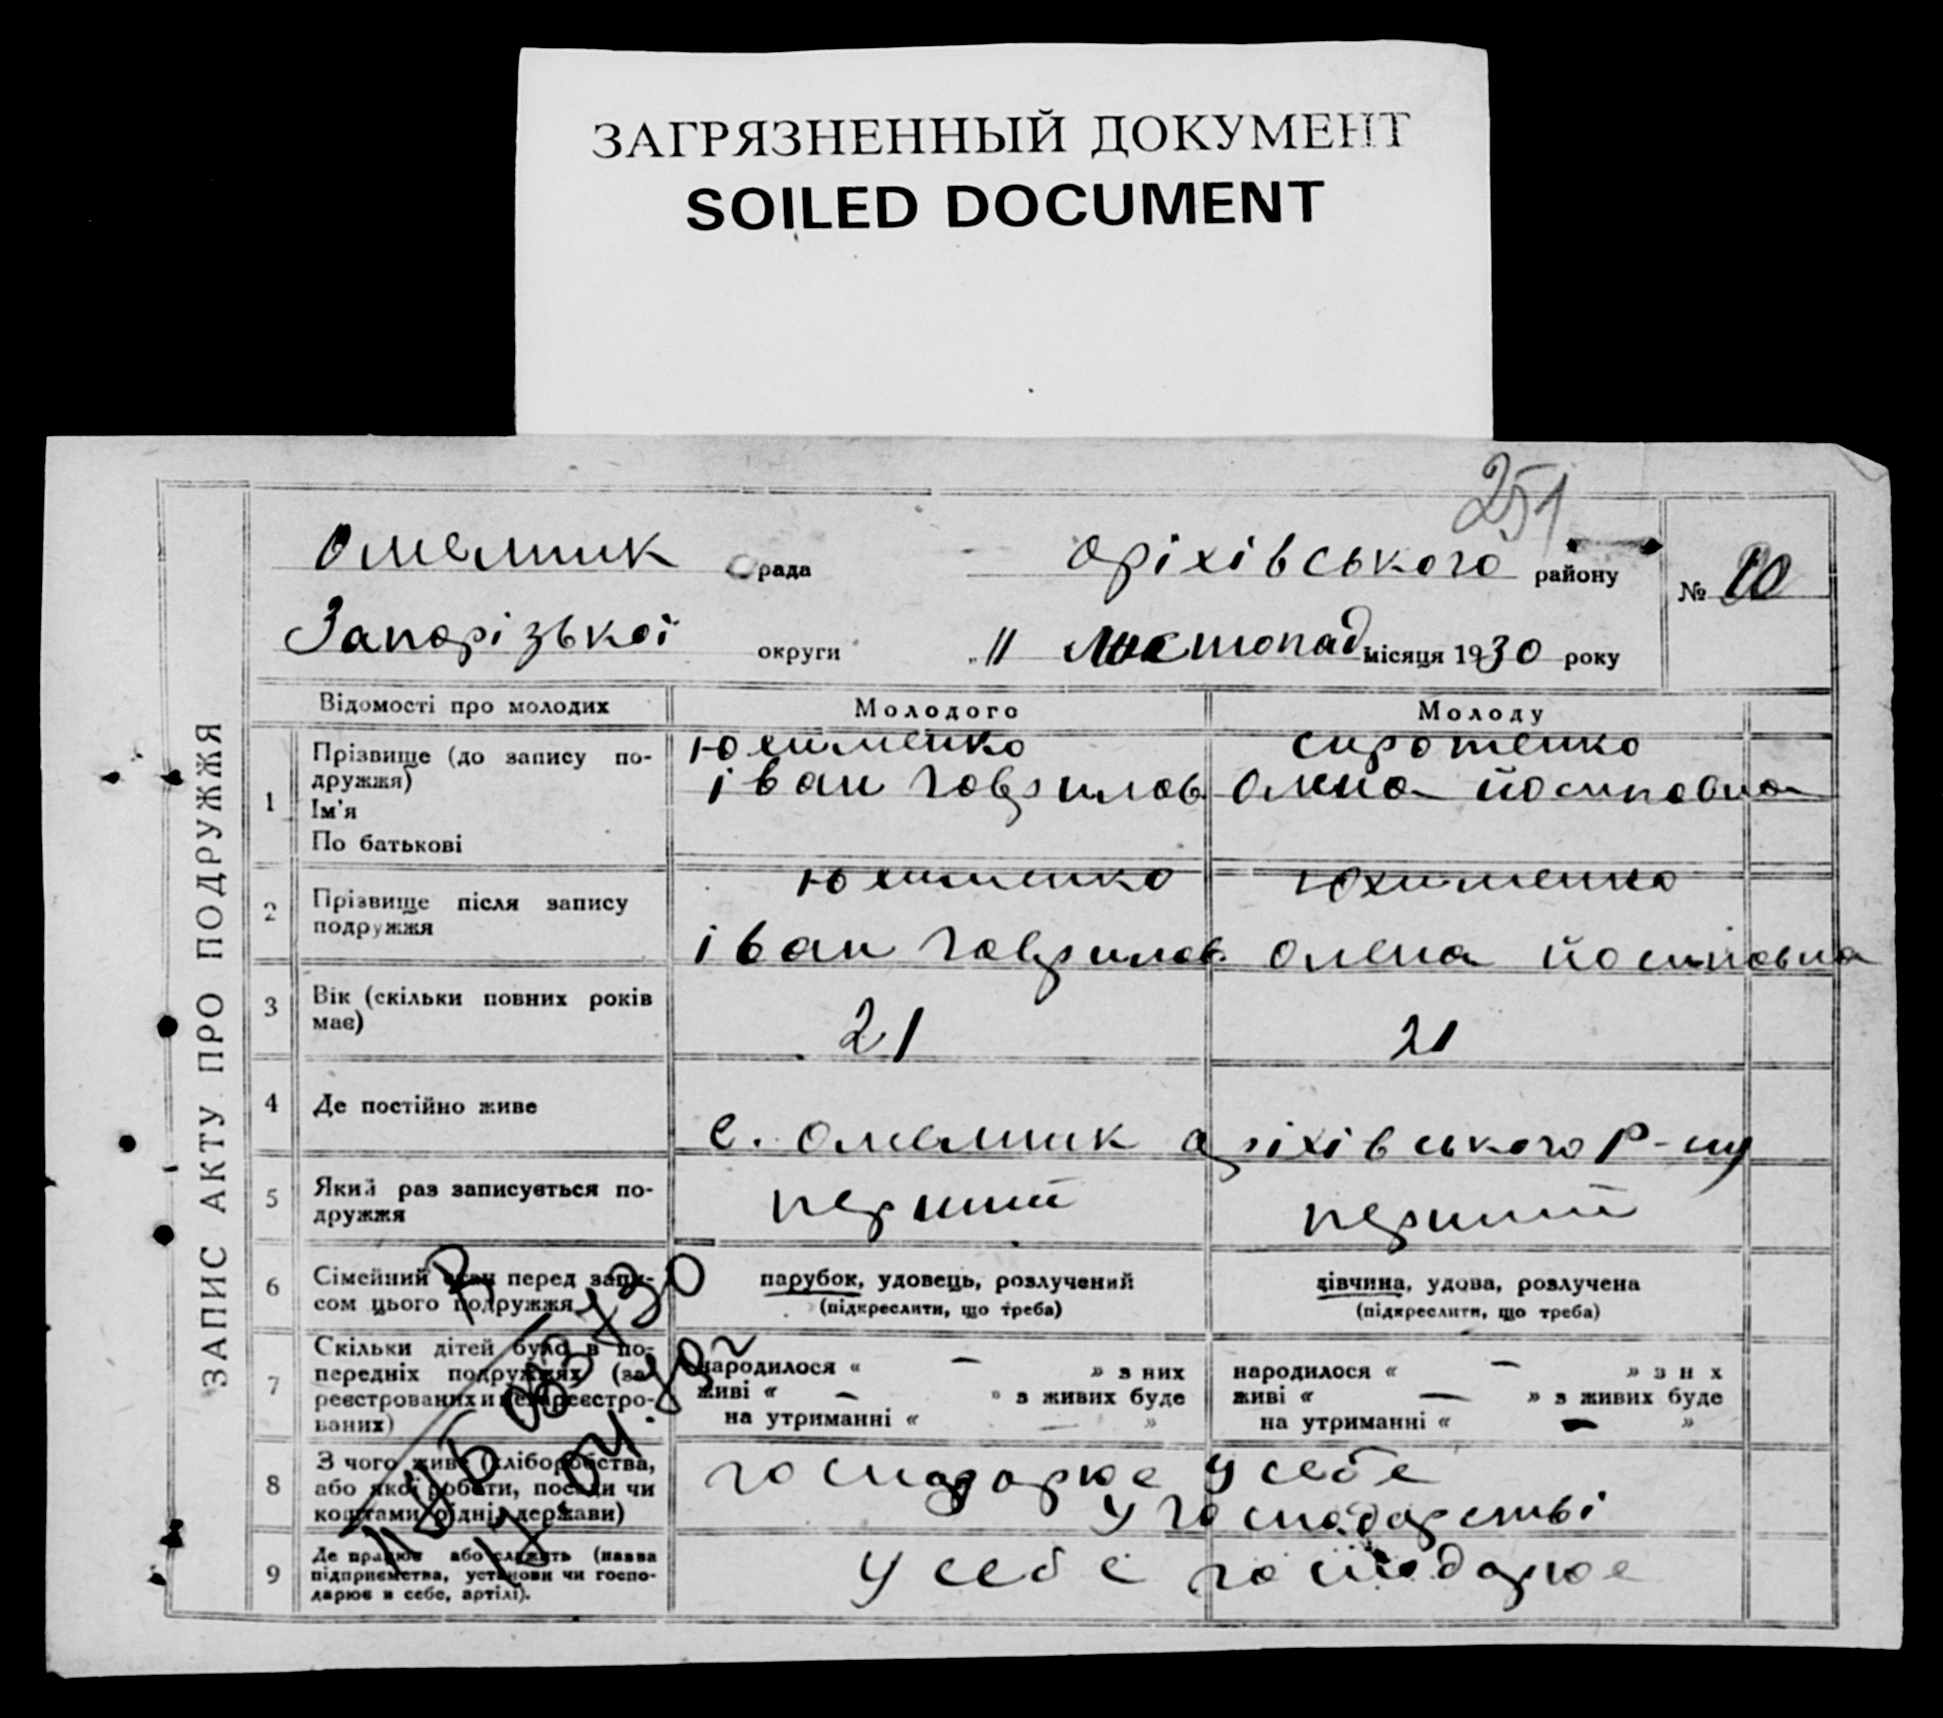 ЗАГРЯЗНЕННЫЙ ДОКУМЕНТ
SOILED DOCUMENT
251
Омелник рада Оріхівського району
№ 20
Запорізької округи „11 листопад місяця 1930 року
ЗАПИС АКТУ ПРО ПОДРУЖЖЯ
Відомості про молодих Молодого Молоду
1 Прізвище (до запису по-
дружжя)
Ім'я
По батькові
Юхименко
Іван Гаврилов
Сиротенко
Олена Йосиповна
2 Прізвище після запису
подружжя
Юхименко
Іван Гаврилов
Юхименко
Олена Йосиповна
3 Вік (скільки повних років
має)
21 21
4 Де постійно живе
с. Омелник Оріхівського р-ну
5 Який раз записується по-
дружжя
перший перший
6 Сімейний стан перед запи-
сом цього подружжя
парубок, удовець, розлучений
(підкреслити, що треба)
дівчина, удова, розлучена
(підкреслити, що треба)
7 Скільки дітей було в по-
передніх подружжях (за-
реєстрованих и незареєстро-
ваних)
народилося « — » з них
живі « — » з живих буде
на утриманні « — »
народилося « — » з них
живі « — » з живих буде
на утриманні « — »
8 З чого живе (хліборобства,
або якої роботи, посади чи
коштами рідні, держави)
господарює у себе
у господарстві
9 Де працює або служить (назва
підприємства, установи чи госпо-
дарює в себе, артілі).
у себе господарює